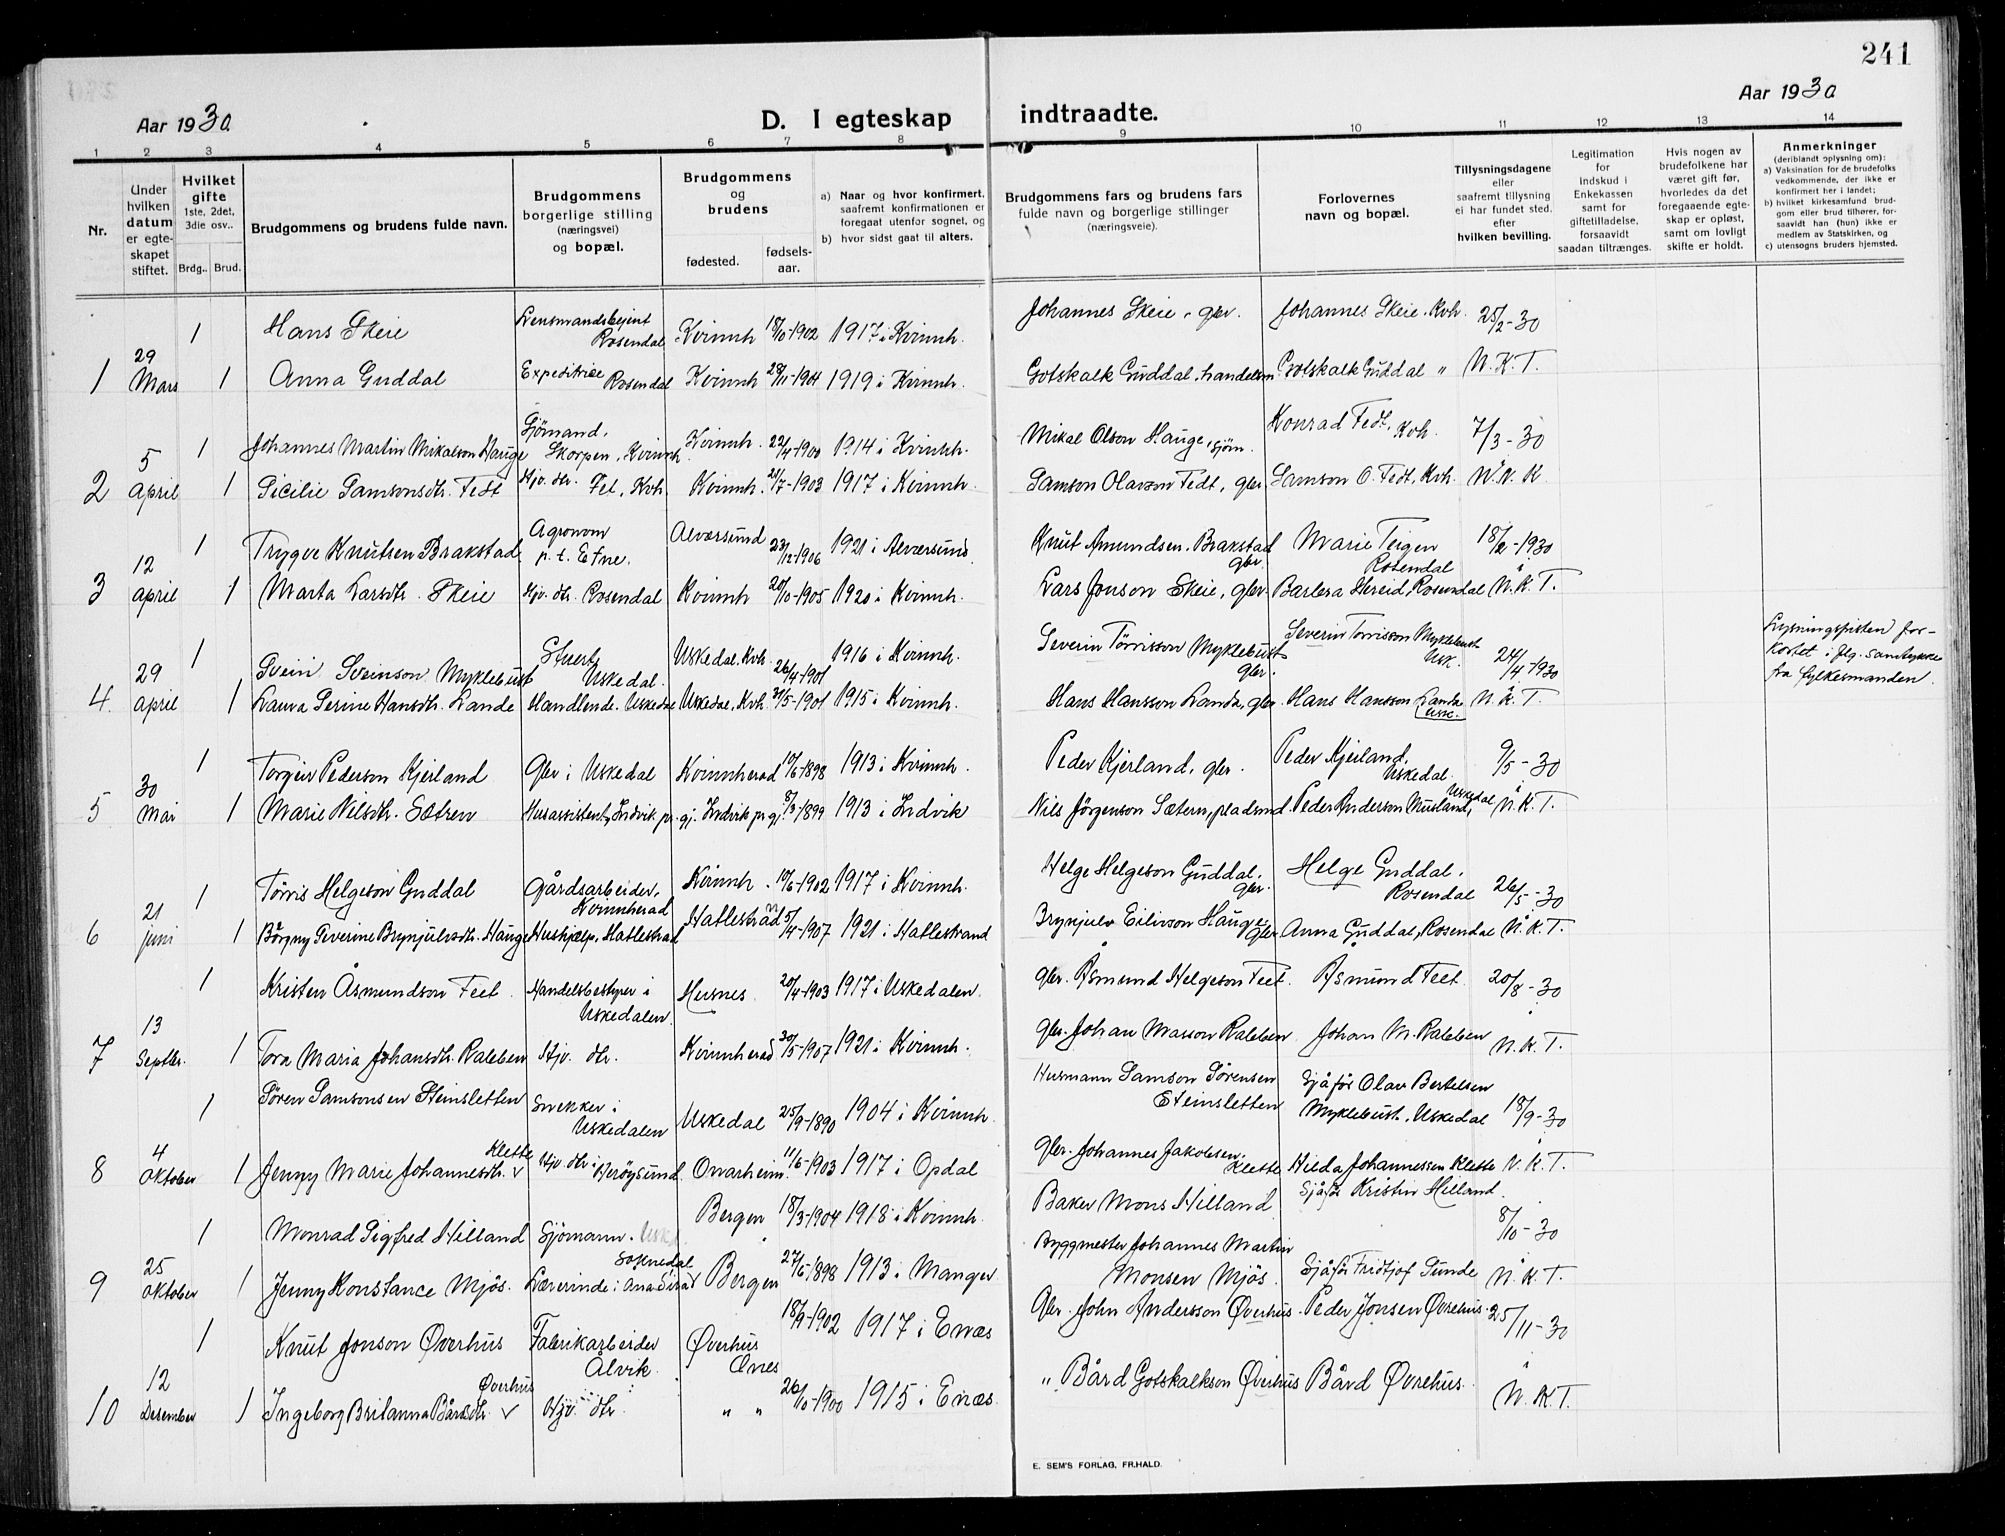 241
Aar 1930
D. I egteskap indtraadte.
Aar 1930
1 2 3 4 5 6 7 8 9 10 11 12 13 14
Nr.
Under hvilken datum er egte-skapet stiftet.
Hvilket gifte 1ste, 2det, 3die osv..
Brdg.. Brud.
Brudgommens og brudens fulde navn.
Brudgommens borgerlige stilling (næringsvei) og bopæl.
Brudgommens og brudens
fødested. fødsels-aar.
a) Naar og hvor konfirmert, saafremt konfirmationen er foregaat utenfor sognet, og
b) hvor sidst gaat til alters.
Brudgommens fars og brudens fars fulde navn og borgerlige stillinger (næringsveie).
Forlovernes navn og bopæl.
Tillysningsdagene eller saafremt tillysning ei har fundet sted. efter hvilken bevilling.
Legitimation for Indskud i Enkekassen samt for giftetilladelse, forsaavidt saadan tiltrænges.
Hvis nogen av brudefolkene har været gift før, hvorledes da det foregaaende egte-skap er opløst, samt om lovligt skifte er holdt.
Anmerkninger (deriblandt oplysning om):
a) Vaksination for de brudefolks vedkommende, der ikke er konfirmert her i landet;
b) hvilket kirkesamfund brud-gom eller brud tilhører, for-saavidt han (hun) ikke er medlem av Statskirken, og
c) utensogns bruders hjemsted.
1 Hans Skeie Lensmandsbetjent Rosendal Kvinnh 18/10-1902 1917 i Kvinnh. Johannes Skeie, gbr. Johannes Skeie, Kvh. 25/2-30
1 29 Mars 1 Anna Guddal Expeditrice Rosendal Kvinnh 28/11-1904 1919 i Kvinnh. Gotskalk Guddal, handelsm. Gotskalk Guddal " N.K.T.
1 Johannes Martin Mikalson Hauge Sjømand, Skorpen, Kvinnh. Kvinnh. 22/4-1900 1914 i Kvinnh. Mikal Olson Hauge, sjøm. Konrad Fedt, Kvh. 7/3-30
2 5 April 1 Sicilie Samsonsdtr. Fedt Hjv. dtr. Fet, Kvh. Kvinnh. 21/7-1903 1917 i Kvinnh. Samson Olavson Fedt, gbr. Samson O. Fedt, Kvh. N.K.
1 Trygve Knutsen Brakstad Agronom p.t. Etne. Alværsund 23/12-1906 1921 i Alværsund Knut Amundsen Brakstad gbr. Marie Teigen Rosendal 18/2-1930
3 12 April 1 Marta Larsdtr. Skeie Hjv. dtr. Rosendal Kvinnh 20/10-1905 1920 i Kvinnh. Lars Jonson Skeie, gbr. Barbra Hereid, Rosendal N.K.T.
1 Svein Sveinson Myklebust Stuert, Uskedal. Uskedal. Kvh. 26/4-1901 1916 i Kvinnh. Severin Tørrisson Myklebust gbr. Severin Torrisson Myklebust Usk. 24/4-1930 Lysningsfristen for-kortet i flg. samtykke fra fylkesmanden.
4 29 April 1 Laura Serine Hansdtr. Lande Handlende. Uskedal Uskedal, Kvh. 31/5-1901 1915 i Kvinnh. Hans Hansson Landa, gbr. Hans Hansson Landa Usk. N.K.T.
1 Torgeir Pederson Kjerland Gbr i Uskedal Kvinnherad 19/6-1898 1913 i Kvinnh. Peder Kjerland, gbr. Peder Kjerland, Uskedal 9/5-30
5 30 Mai 1 Marie Nilsdtr. Sætren Husassistent, Indvik pr. gj. Indvik pr gj. 8/3-1899 1913 i Indvik Nils Jørgenson Sætern, pladsmd. Peder Anderson Musland, Uskedal N.K.T.
1 Tørris Helgeson Guddal Gårdsarbeider, Kvinnherad Kvinnh. 19/6-1902 1917 i Kvinnh. Helge Helgeson Guddal, gbr. Helge Guddal, Rosendal 26/5-30
6 21 Juni 1 Børgny Severine Brynjulvsdtr. Hauge Hushjælp, Hatlestrad Hatlestrad 5/4-1907 1921 i Hatlestrand Brynjulv Eilivson Hauge, gbr. Anna Guddal, Rosendal N.K.T.
1 Kristen Åsmundson Feet Handelsbestyrer i Uskedalen Husnes 20/4-1903 1917 i Uskedalen Gbr. Åsmund Helgeson Feet Åsmund Feet 20/8-30
7 13 Septbr. 1 Tora Maria Johansdtr. Raleben Hjv. dtr. Kvinnherad 30/5-1907 1921 i Kvinnh. Gbr. Johan Masson Raleben Johan M. Raleben N.K.T.
1 Søren Samsonsen Steinsletten Snekker i Uskedalen Uskedal 25/9-1890 1904 i Kvinnh Husmann Samson Sørensen Steinsletten Sjåfør Olav Bertelsen Myklebust, Uskedal 18/9-30
8 4 Oktober 1 Jenny Marie Johannesdtr. Klette Hjv dtr i Herøysund Ovarheim 11/6-1903 1917 i Opdal Gbr. Johannes Jakobsen Klette Hilda Johannessen Klette N.K.T.
1 Monrad Sigfred Hilland Sjømann. Usk. Bergen 18/3-1904 1918 i Kvinnh. Baker Mons Hilland Sjåfør Kristin Hilland 8/10-30
9 25 Oktober 1 Jenny Konstance Mjøs. Lærerinde i Ana-Sira Soknedal Bergen 27/5-1898 1913 i Manger Byggmester Johannes Martin Monsen Mjøs. Sjåfør Fridtjof Sunde N.K.T.
1 Knut Jonson Øverhus Fabrikarbeider Ålvik Øverhus Ænes 18/9-1902 1917 i Enæs Gbr. John Andersson Øverhus. Peder Jonsen Øvrehus. 25/11-30
10 12 Desember 1 Ingeborg Britanna Bårdsdtr. Øverhus Hjv. dtr. " " 26/10-1900 1915 i Enæs. " Bård Gotskalkson Øverhus Bård Øvrehus. N.K.T.
E. SEM'S FORLAG, FR.HALD.